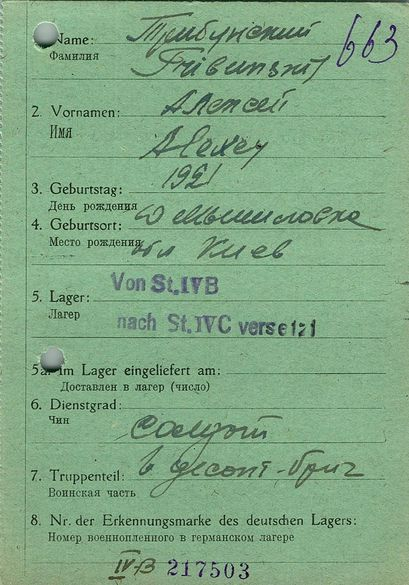 663
1. Name: Трибунский
Фамилия Tribunskij
2. Vornamen: Алексей
Имя
Alexey
3. Geburtstag: 1921
День рождения
4. Geburtsort:
Место рождения обл Киев
5. Lager: Von St.IVB
Лагер
nach St.IVC versetzt
5a. Im Lager eingeliefert am:
Доставлен в лагер (число)
6. Dienstgrad:
Чин
солдат
7. Truppenteil: 6 десант. бриг
Воинская часть
8. Nr. der Erkennungsmarke des deutschen Lagers:
Номер военнопленного в германском лагере
IV-B 217503